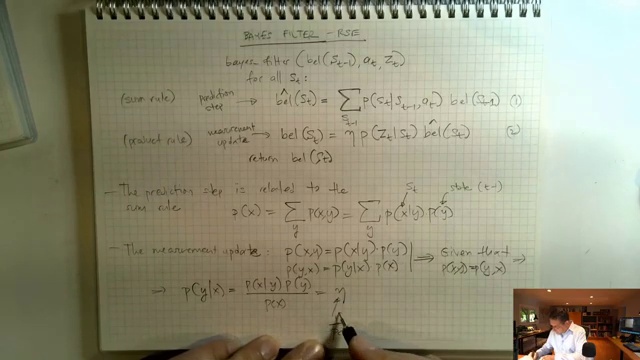 BAYES FILTER - RSE
bayes-filter (bel(S_{t-1}), a_t, Z_t)
for all S_t:
(sum rule) prediction step → bel̂(S_t) = Σ_{S_{t-1}} p(S_t | S_{t-1}, a_t) bel(S_{t-1}) (1)
(product rule) measurement update → bel(S_t) = η p(Z_t | S_t) bel̂(S_t) (2)
return bel(S_t)
S_t state (t-1)
- The prediction step is related to the
sum rule p(x) = Σ_y p(x,y) = Σ_y p(x|y) p(y)
- The measurement update: p(x,y) = p(x|y) · p(y) ⟹ Given that
p(y,x) = p(y|x) p(x) p(x,y) = p(y,x)
⟹ p(y|x) = p(x|y) p(y) / p(x) = η